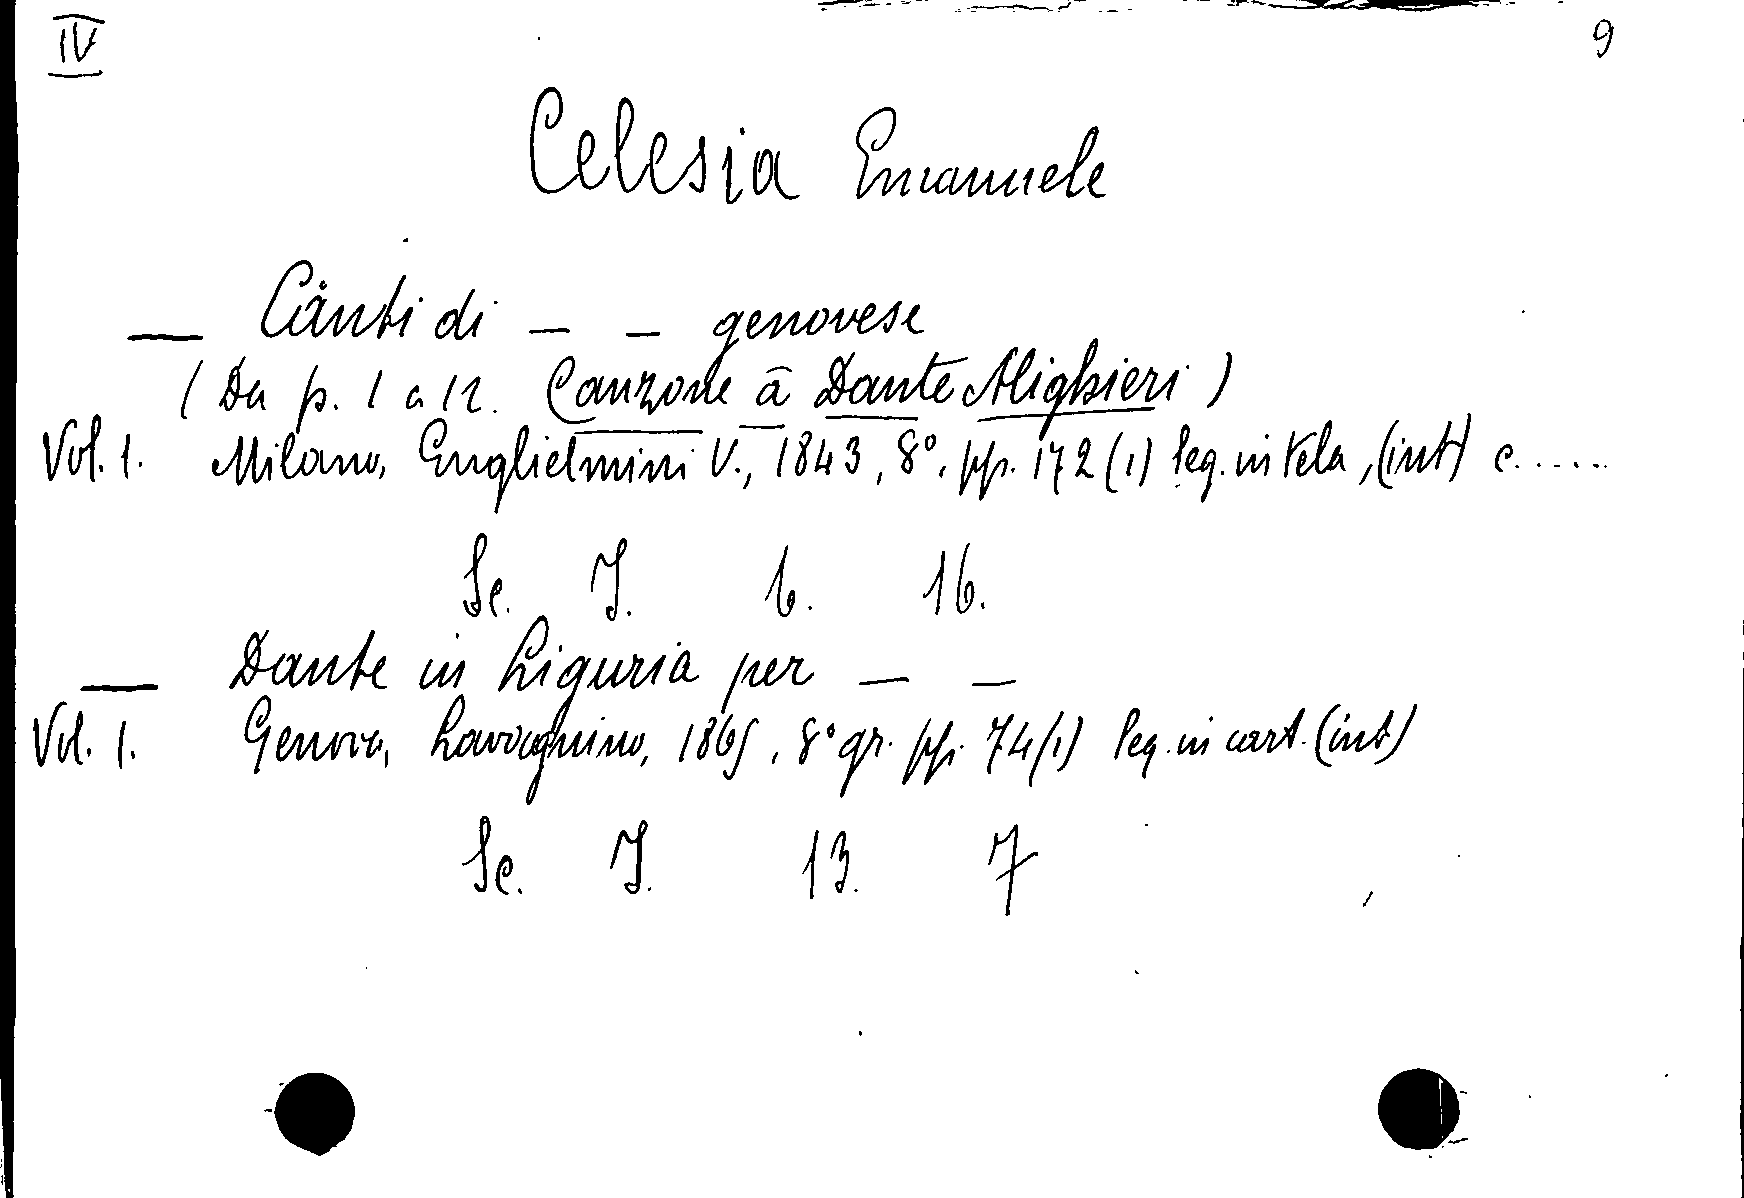 IV 9
Celesia Emanuele
— Canti di — — genovese
( Da p. 1 a 12. Canzone a Dante Alighieri )
Vol. 1. Milano, Guglielmini V., 1843, 8°, pp. 172 (1) leg. in tela, (int) c.....
Sc. I. 6. 16.
— Dante in Liguria per — —
Vol. 1. Genova, Lavagnino, 1865, 8° gr. pp. 74 (1) leg. in cart. (int)
Sc. I. 13. 7